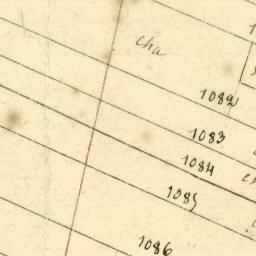 cha
1082
1083
1084
1085
1086